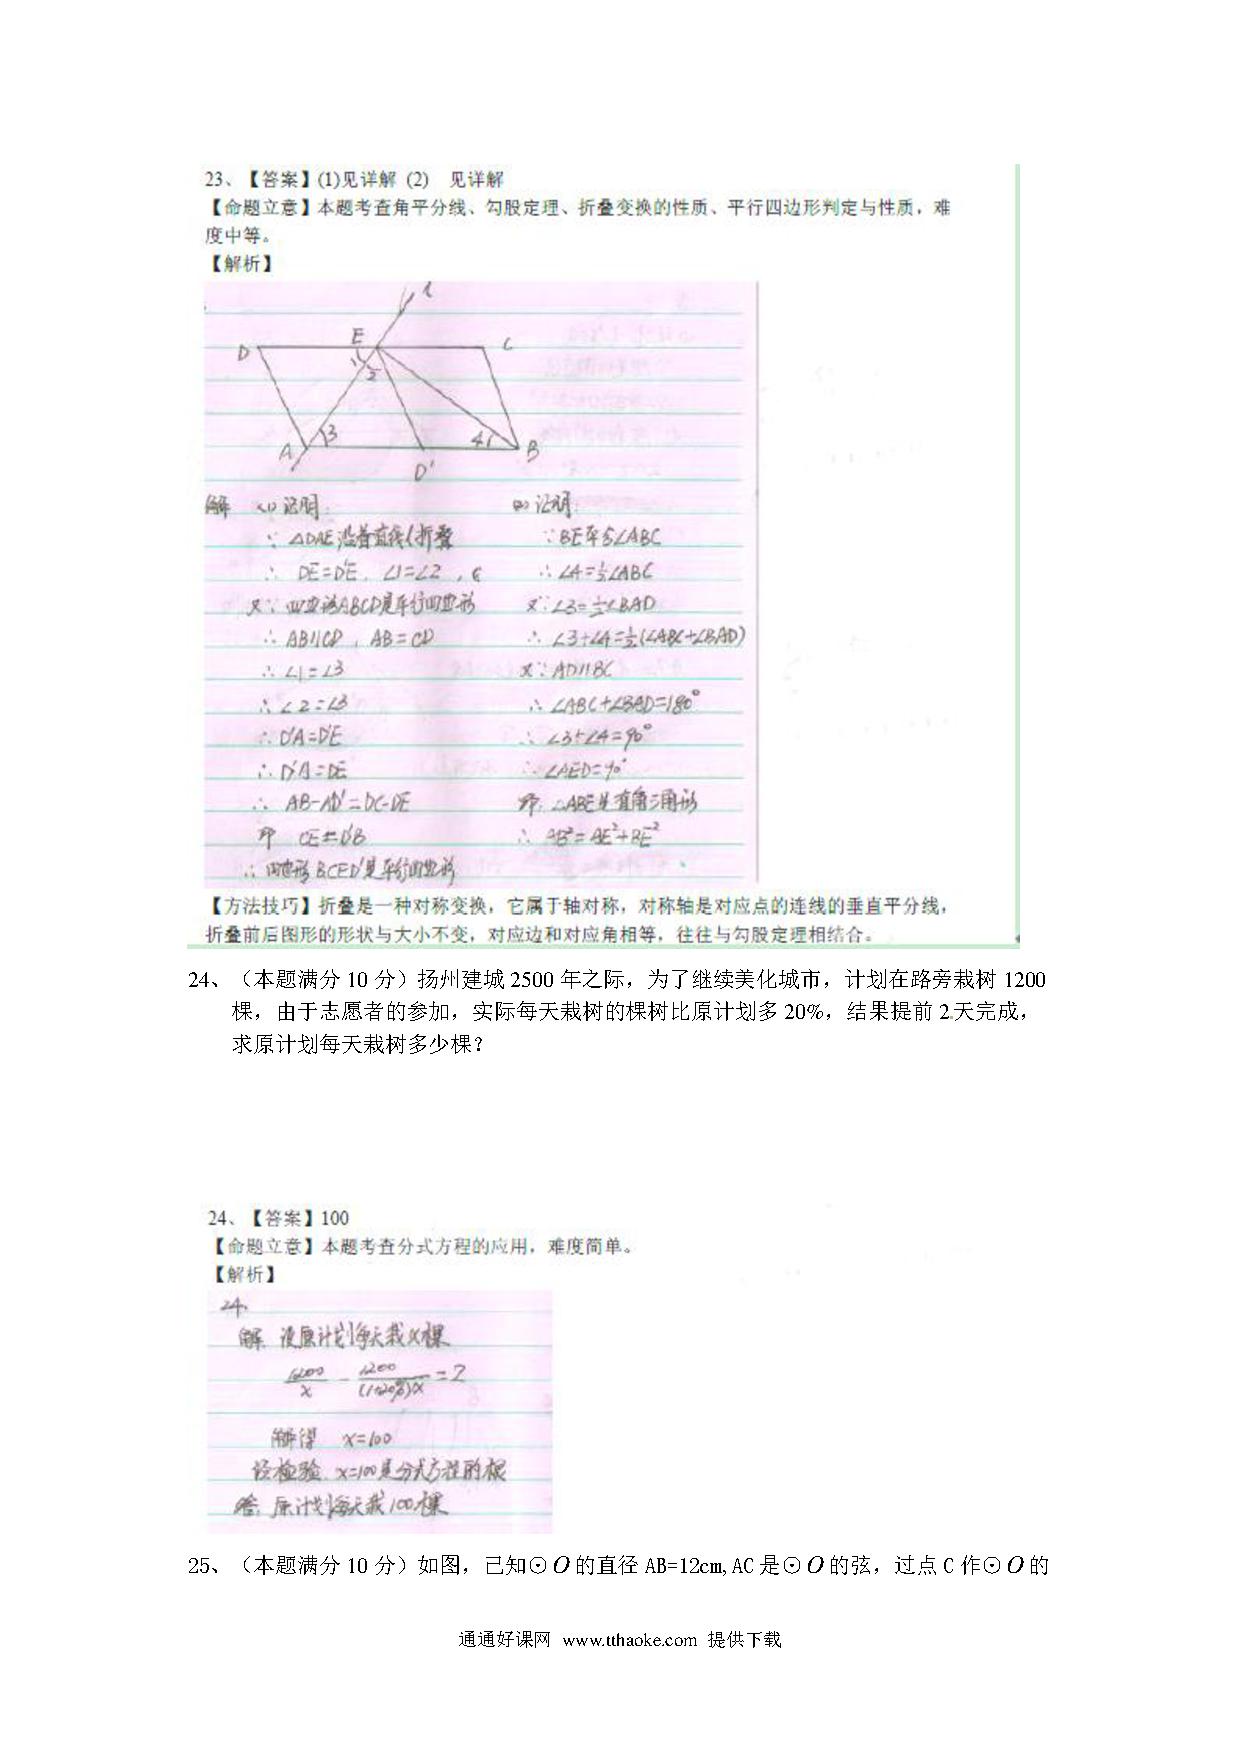 23、【答案】(1)见详解 (2) 见详解
【命题立意】本题考查角平分线、勾股定理、折叠变换的性质、平行四边形判定与性质，难
度中等。
【解析】
l
D E C
1
2
A 3 4 B
D'
解 (1)证明:
∵ △DAE沿着直线l折叠
∴ DE=D'E, ∠1=∠2
又∵ 四边形ABCD是平行四边形
∴ AB//CD, AB=CD
∴ ∠1=∠3
∴ ∠2=∠3
∴ D'A=D'E
∴ D'A=DE
∴ AB-AD'=DC-DE
即 CE=D'B
∴ 四边形BCED'是平行四边形
(2)证明:
∵BE平分∠ABC
∴∠4=½∠ABC
又∵∠3=½∠BAD
∴ ∠3+∠4=½(∠ABC+∠BAD)
又∵AD//BC
∴ ∠ABC+∠BAD=180°
∴ ∠3+∠4=90°
∴ ∠AED=90°
即: △ABE是直角三角形
∴ AB²=AE²+BE²
【方法技巧】折叠是一种对称变换，它属于轴对称，对称轴是对应点的连线的垂直平分线，
折叠前后图形的形状与大小不变，对应边和对应角相等，往往与勾股定理相结合。
24、（本题满分 10 分）扬州建城 2500 年之际，为了继续美化城市，计划在路旁栽树 1200
棵，由于志愿者的参加，实际每天栽树的棵树比原计划多 20%，结果提前 2 天完成，
求原计划每天栽树多少棵？
24、【答案】100
【命题立意】本题考查分式方程的应用，难度简单。
【解析】
24.
解 设原计划每天栽x棵
1200/x - 1200/(1+20%)x = 2
解得 x=100
经检验, x=100是分式方程的根
答: 原计划每天栽100棵
25、（本题满分 10 分）如图，已知⊙O的直径 AB=12cm, AC 是⊙O的弦，过点 C 作⊙O的
通通好课网 www.tthaoke.com 提供下载